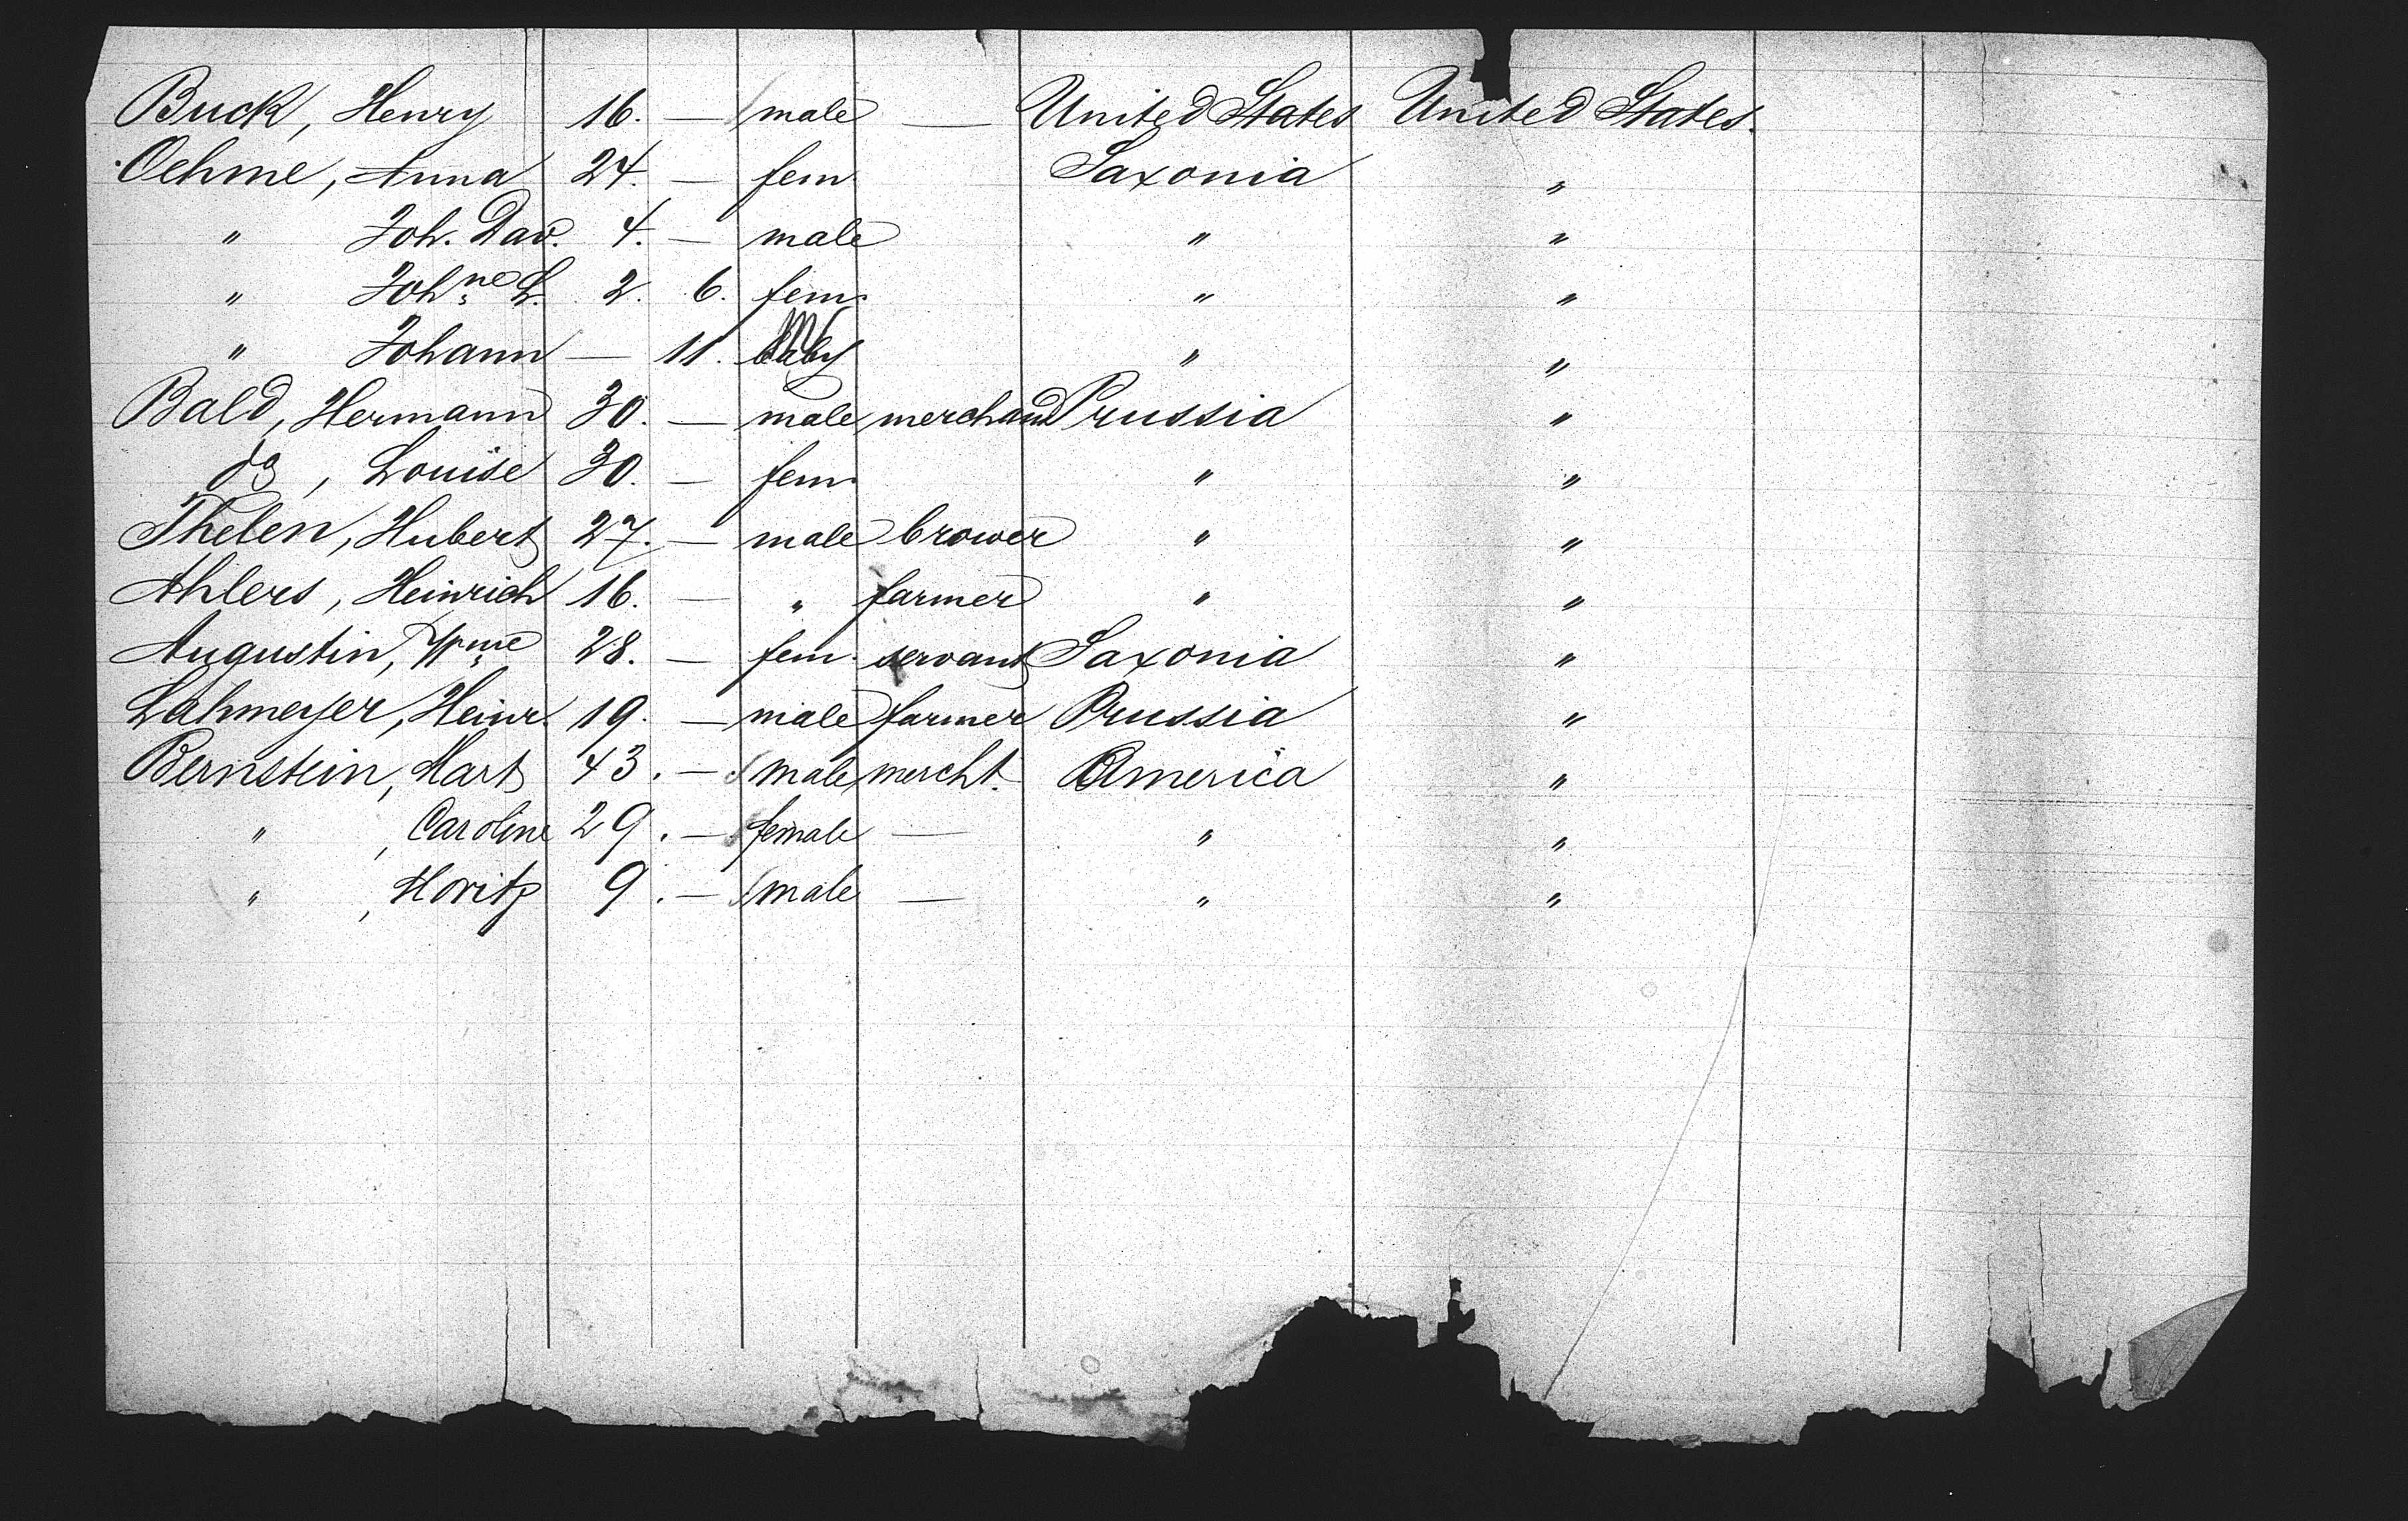 Buck, Henry 16. — male — United States United States.
Oehme, Anna 24. — fem Saxonia "
" Joh. Dav. 4. — male " "
" Johne L. 2. 6. fem. " "
" Johann — 11. baby " "
Bald, Hermann 30. — male merchand Prussia "
do, Louise 30. — fem. " "
Thelen, Hubert 27. — male brower " "
Ahlers, Heinrich 16. — " farmer " "
Augustin, Wme 28. — fem. servant Saxonia "
Lahmeyer, Heinr. 19. — male farmer Prussia "
Bernstein, Hart 43. — male mercht. America "
" , Caroline 29. — female — " "
" , Moritz 9. — male — " "